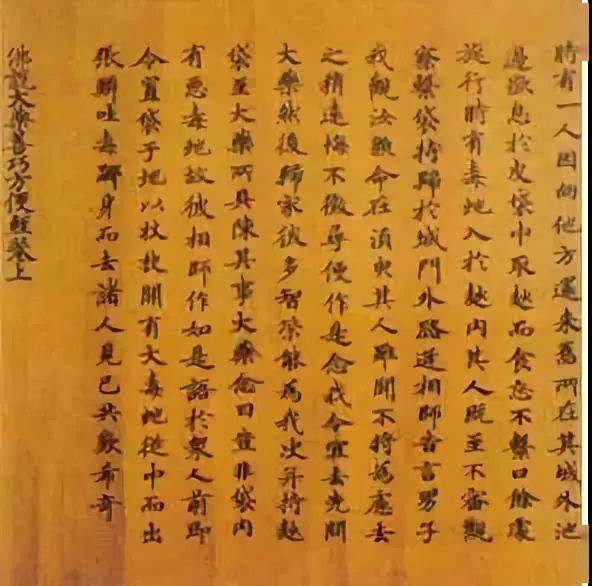 時有一人因向他方還來舊所在其城外池
邊歇息於皮袋中取麨而食忘不繫口餘處
旋行時有毒蛇入於麨内其人既至不審觀
察繫袋持歸於城門外路逢相師告言男子
我觀汝顏命在須臾其人雖聞不將為慮去
之稍遠悔不徵尋便作是念我今宜去先問
大藥然後歸家彼多智策能為我決并持麨
袋至大藥所具陳其事大藥念曰豈非袋内
有惡毒蛇故彼相師作如是語於眾人前即
令置袋于地以杖披開有大毒蛇從中而出
張鱗吐毒躑身而去諸人見已共歎希奇
佛說大藥善巧方便經卷上